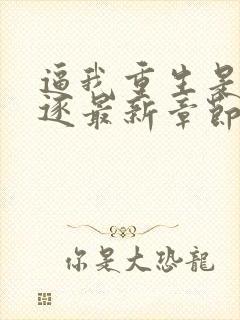 逼我重生是
逐最新章節
你是大恐龍